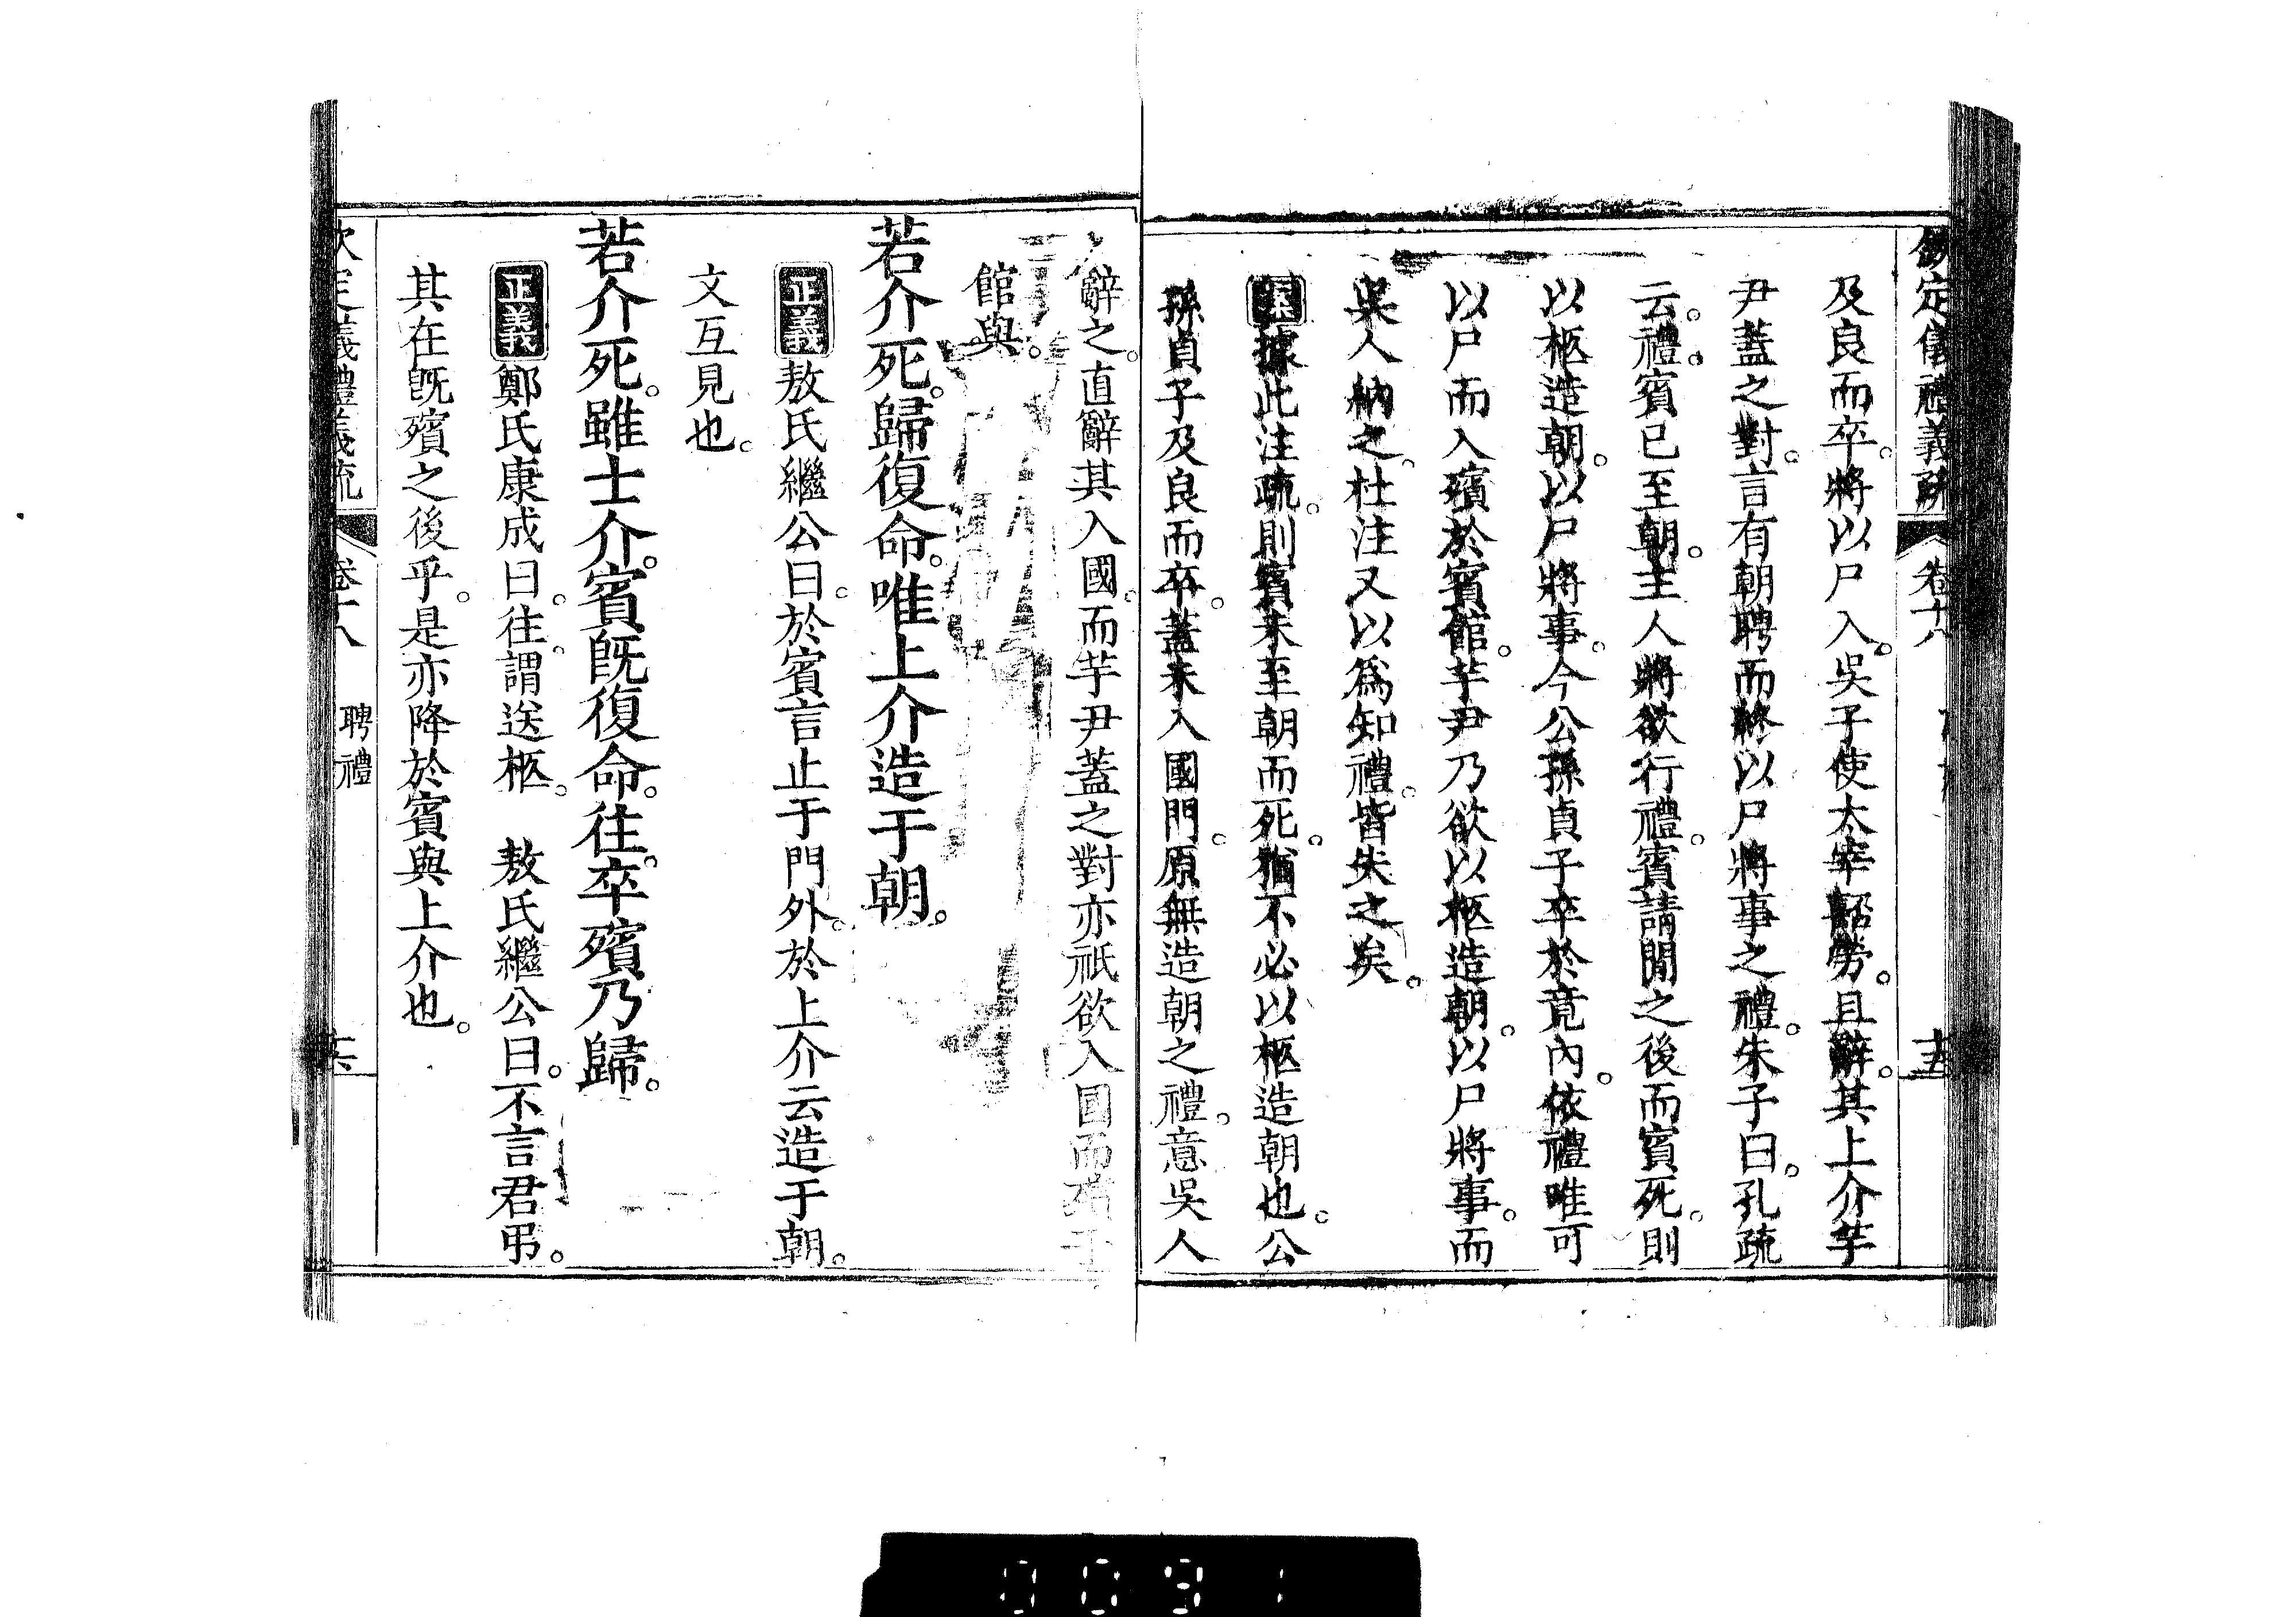 欽定儀禮義疏 卷十八
及良而卒。將以尸入。吳子使太宰嚭勞。且辭。其上介芋
尹蓋之對。言有朝聘而終以尸將事之禮。朱子曰。孔疏
云。禮。賓已至朝。主人將欲行禮。賓請閒之後而賓死。則
以柩造朝。以尸將事。今公孫貞子卒於竟內。依禮唯可
以尸而入殯於賓館。芋尹乃欲以柩造朝。以尸將事。而
吳人納之。杜注又以為知禮。皆失之矣。
據此注疏。則賓未至朝而死。猶不必以柩造朝也。公
孫貞子及良而卒。蓋未入國門。原無造朝之禮。意吳人
辭之。直辭其入國。而芋尹蓋之對亦祇欲入國而殯于
館與。
若介死。歸復命。唯上介造于朝。
正義 敖氏繼公曰。於賓言止于門外。於上介云造于朝。
文互見也。
若介死。雖士介。賓既復命。往。卒殯乃歸。
正義 鄭氏康成曰。往。謂送柩。 敖氏繼公曰。不言君弔。
其在既殯之後乎。是亦降於賓與上介也。
儀禮義疏 卷十八 聘禮
0091